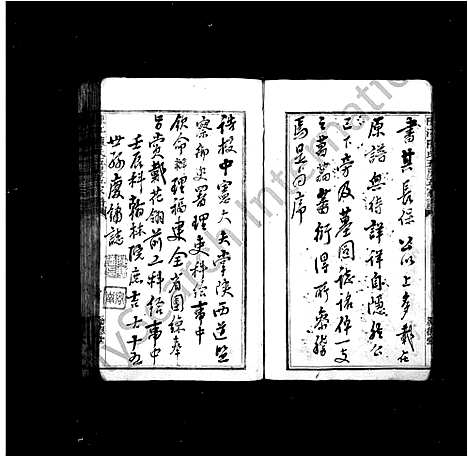 書其長保公以上多載在
原譜無待詳詳自隱然公
以下旁及墓圖誌詺俾一支
之蕃蕃衍得所參稽
焉是為序
誥授中憲大夫掌陝西道監
察御史署理吏科給事中
欽命辦理福建全省團練奉
旨賞戴花翎前工科給事中
壬辰科翰林院庶吉士十五
世孫慶鏞誌